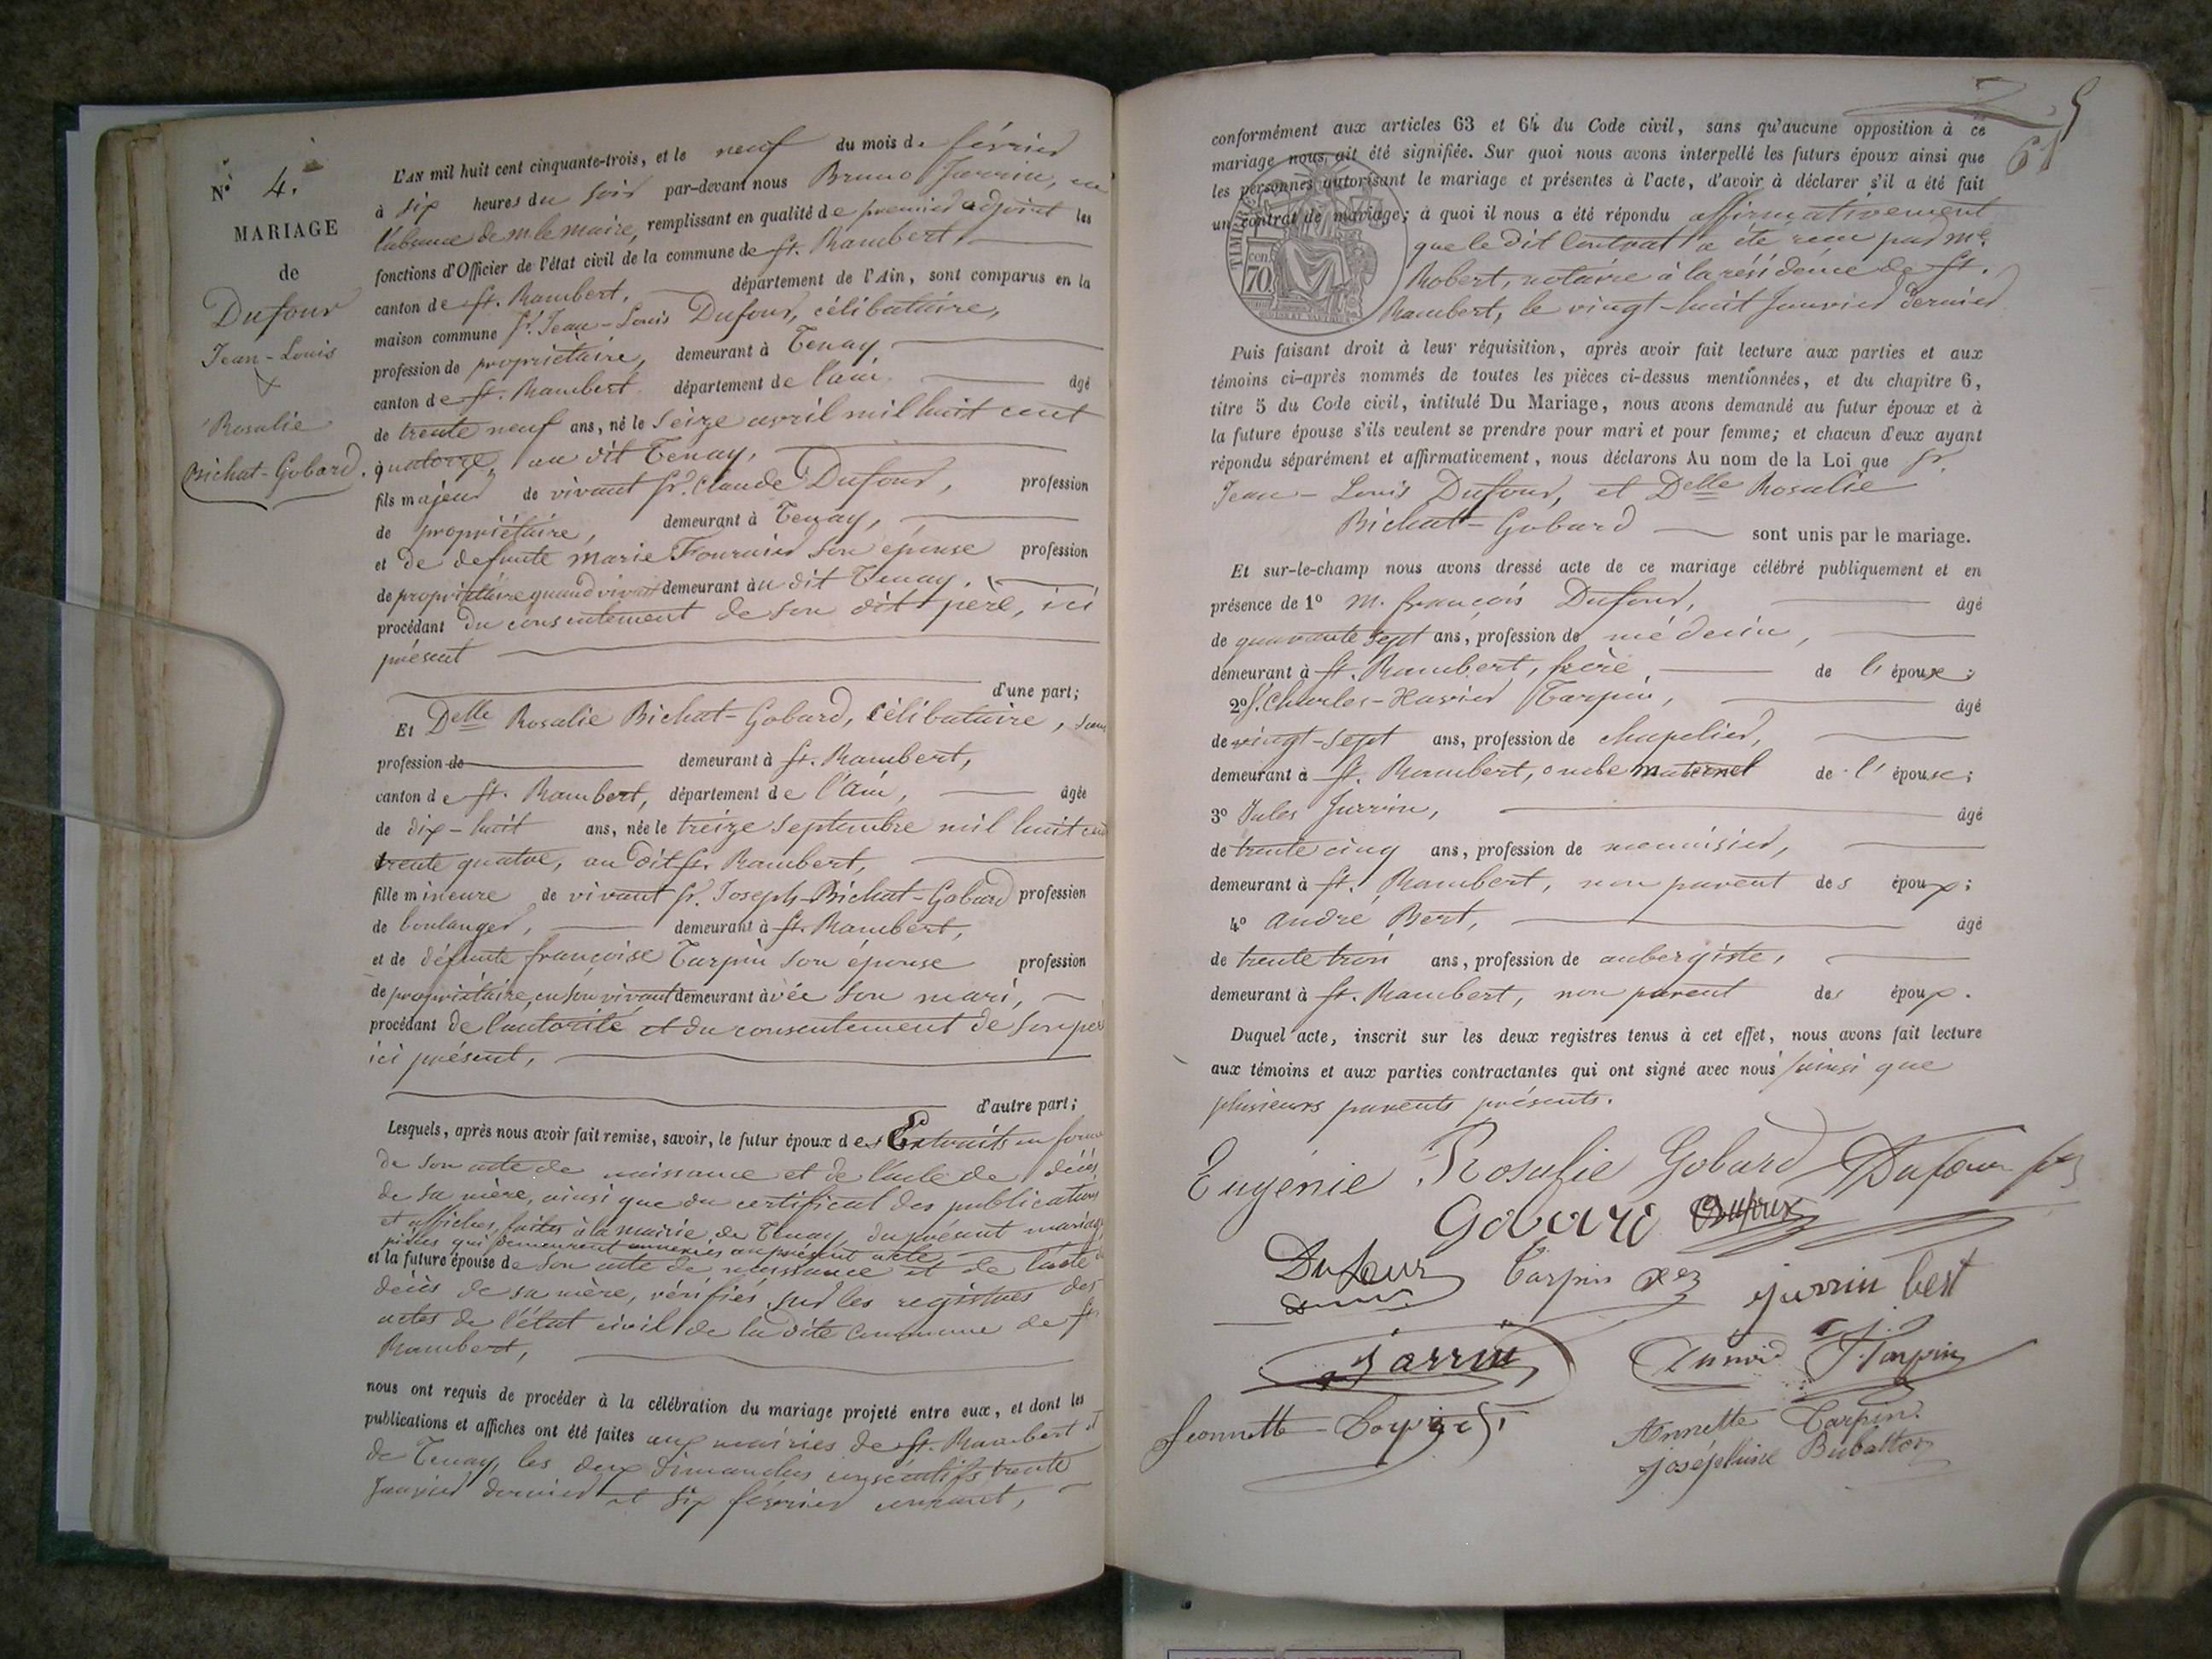 N° 4.
MARIAGE
de
Dufour
Jean-Louis
&
Rosalie
Bichat-Gobard.
L'AN mil huit cent cinquante-trois, et le neuf du mois de février
à six heures du soir par-devant nous Bruno Jarrin, en
l'absence de m. le maire, remplissant en qualité de premier adjoint les
fonctions d'Officier de l'état civil de la commune de St. Rambert,
canton de St. Rambert, département de l'Ain, sont comparus en la
maison commune Sr. Jean-Louis Dufour, célibataire,
profession de propriétaire, demeurant à Tenay
canton de St. Rambert département de l'ain âgé
de trente neuf ans, né le seize avril mil huit cent
quatorze, au dit Tenay,
fils majeur de vivant Sr. Claude Dufour, profession
de propriétaire, demeurant à Tenay,
et de defunte Marie Fournier son épouse profession
de propriétaire quand vivait demeurant au dit Tenay.
procédant du consentement de son dit père, ici
présent
d'une part;
Et Delle Rosalie Bichat-Gobard, célibataire, sans
profession de demeurant à St. Rambert,
canton de St. Rambert, département de l'Ain, âgée
de dix-huit ans, née le treize septembre mil huit cent
trente quatre, au dit St. Rambert,
fille mineure de vivant Sr. Joseph Bichat-Gobard profession
de boulanger, demeurant à St. Rambert,
et de défunte françoise Tarpin son épouse profession
de propriétaire, en son vivant demeurant avec son mari,
procédant de l'autorité et du consentement de son père
ici présent,
d'autre part;
Lesquels, après nous avoir fait remise, savoir, le futur époux des Extraits en forme
de son acte de naissance et de l'acte de décès
de sa mère, ainsi que du certificat des publications
et affiches, faites à la mairie de Tenay, du présent mariage
pièces qui demeurent annexées au présent acte
et la future épouse de son acte de naissance et de l'acte de
décès de sa mère, vérifiés sur les registres des
actes de l'état civil de la dite Commune de St.
Rambert,
nous ont requis de procéder à la célébration du mariage projeté entre eux, et dont les
publications et affiches ont été faites aux mairies de St. Rambert et
de Tenay, les deux dimanches consécutifs trente
Janvier dernier et six février courant,
conformément aux articles 63 et 64 du Code civil, sans qu'aucune opposition à ce
mariage nous ait été signifiée. Sur quoi nous avons interpellé les futurs époux ainsi que
les personnes autorisant le mariage et présentes à l'acte, d'avoir à déclarer s'il a été fait
un contrat de mariage; à quoi il nous a été répondu affirmativement
que le dit Contrat a été reçu par me.
Robert, notaire à la résidence de St.
Rambert, le vingt-huit Janvier dernier
TIMBRE
70 cen.
Puis faisant droit à leur réquisition, après avoir fait lecture aux parties et aux
témoins ci-après nommés de toutes les pièces ci-dessus mentionnées, et du chapitre 6,
titre 5 du Code civil, intitulé Du Mariage, nous avons demandé au futur époux et à
la future épouse s'ils veulent se prendre pour mari et pour femme; et chacun d'eux ayant
répondu séparément et affirmativement, nous déclarons Au nom de la Loi que Sr.
Jean-Louis Dufour, et Delle Rosalie
Bichat-Gobard sont unis par le mariage.
Et sur-le-champ nous avons dressé acte de ce mariage célébré publiquement et en
présence de 1° M. françois Dufour, âgé
de quarante sept ans, profession de médecin,
demeurant à St. Rambert, frère de l'époux;
2° S. Charles-Xavier Tarpin, âgé
de vingt-sept ans, profession de chapelier,
demeurant à St. Rambert, oncle maternel de l'épouse;
3° Jules Jarrin, âgé
de trente cinq ans, profession de menuisier,
demeurant à St. Rambert, non parent des époux;
4° André Bert, âgé
de trente trois ans, profession de aubergiste,
demeurant à St. Rambert, non parent des époux.
Duquel acte, inscrit sur les deux registres tenus à cet effet, nous avons fait lecture
aux témoins et aux parties contractantes qui ont signé avec nous ainsi que
plusieurs parents présents.
Eugénie Rosalie Gobard Dufour
Gobard Dufour
Dufour Tarpin Xer jarrin bert
Jarrin J. Tarpin
Jeannette
Annette Tarpin
joséphine